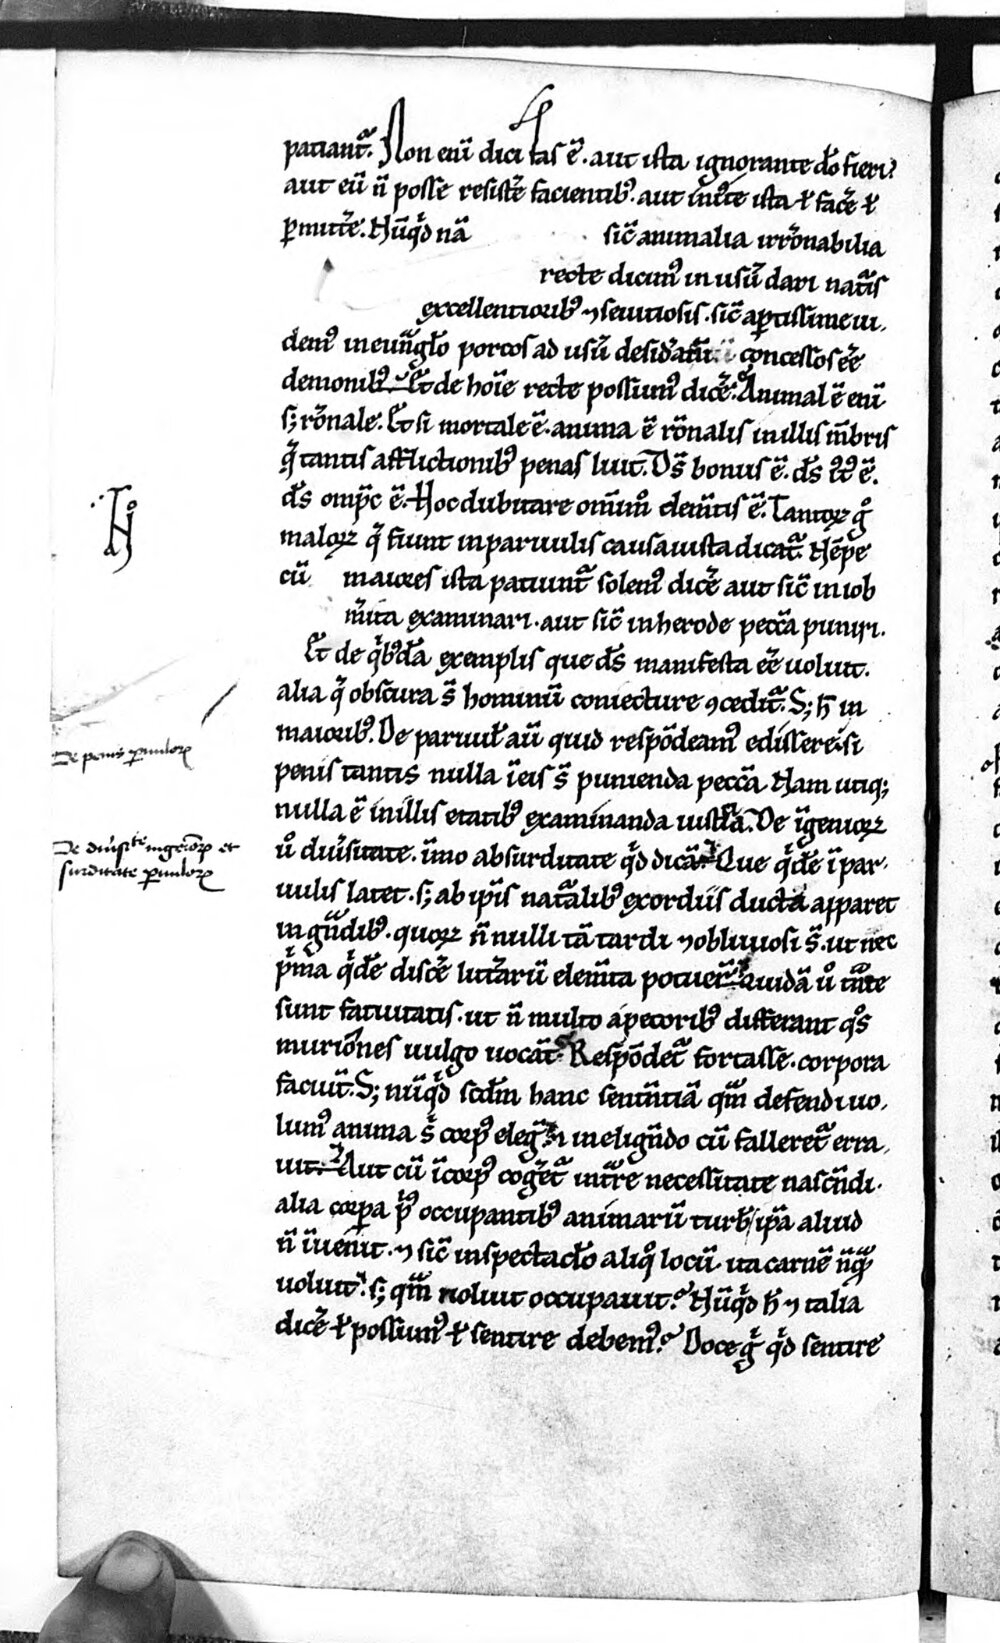 patiant᷑. Non enī dici fas ē. aut ista ignorante dō fieri.
aut eū n̄ posse resist̄e facientib⁊. aut iniuste ista ł facēe ł
p̱mitt̄e. Nūqd nā sic̄ animalia irrōnabilia
recte dicim⁊ in usū dari natīs
excellentiorib⁊ ⁊ seuitiosis. sic̄ ap̱tissime ui,
dem⁊ in euāglō porcos ad usū desid̄atū concessos ēe
demonib⁊. Et de hoīe recte possum⁊ dic̄e. Animal ē enī
s; rōnale. Et si mortale ē. anima ē rōnalis in illis m̄bris
q̄ tantis afflictionib⁊ penas luit. Ds̄ bonus ē. ds̄ ē.
ds̄ omp̄c ē. Hoc dubitare omīno dem̄tis ē. Tantoꝝ g̊
maloꝝ q̄ fiunt in paruulis causa iusta dicat᷑. Nēpe
cū maiores ista patiunt᷑ solem⁊ dic̄e aut sic̄ in iob
m̄ita examinari. aut sic̄ in herode pecc̄a puniri.
Et de qib⁊dā exemplis que ds̄ manifesta ēe uoluit.
alia q̄ obscura s̄ hominū coniecture ꝯcedit᷑. S; h̄ in
maiorib⁊. De paruuł aū quid respōdeam⁊ edissere. si
penis tantis nulla ī eis s̄ punienda pecc̄a. Nam utiq;
nulla ē in illis etatib⁊ examinanda iustīa. De īgenioꝝ
ů diūsitate. īmo absurditate qd dicā. Que qdē ī par,
uulis latet. s; ab ip̄is natālib⁊ exordiis ducta apparet
in gndib⁊. quoꝝ n̄nulli tā tardi ⁊ obliuiosi s̄. ut nec
p̄ma qdē disc̄e litt̄arū elem̄ta potuer̄. Quidā ů tn̄te
sunt fatuitatis. ut n̄ multo a pecorib⁊ differant qs̊
muriōnes uulgo uocāt. Respōdet᷑ fortasse. corpora
faciūt. S; nūqd scd̄m hanc sentn̄tiā qm̄ defendi uo,
lum⁊ anima s̄ corp⁊ eleḡ ⁊ in elign̄do cū falleret᷑ erra,
uit. Aut cū ī corp⁊ coḡet᷑ int̄re necessitate nascn̄di.
alia corp̱a p̄ occupantib⁊ animarū turb̄ ip̄a aliud
n̄ īuenit. ⁊ sic̄ in spectac̄lo aliq̊ locū. ita carnē n̄ quā
uoluit. s; quā noluit occupauit. Nūqd h̄ ⁊ talia
dic̄e ł possum⁊ ł sentire debem⁊. Doce g̊ qd sentire
De penis ꝑuuloꝝ
De diuīsitē ingenioꝝ et
surditate ꝑuuloꝝ